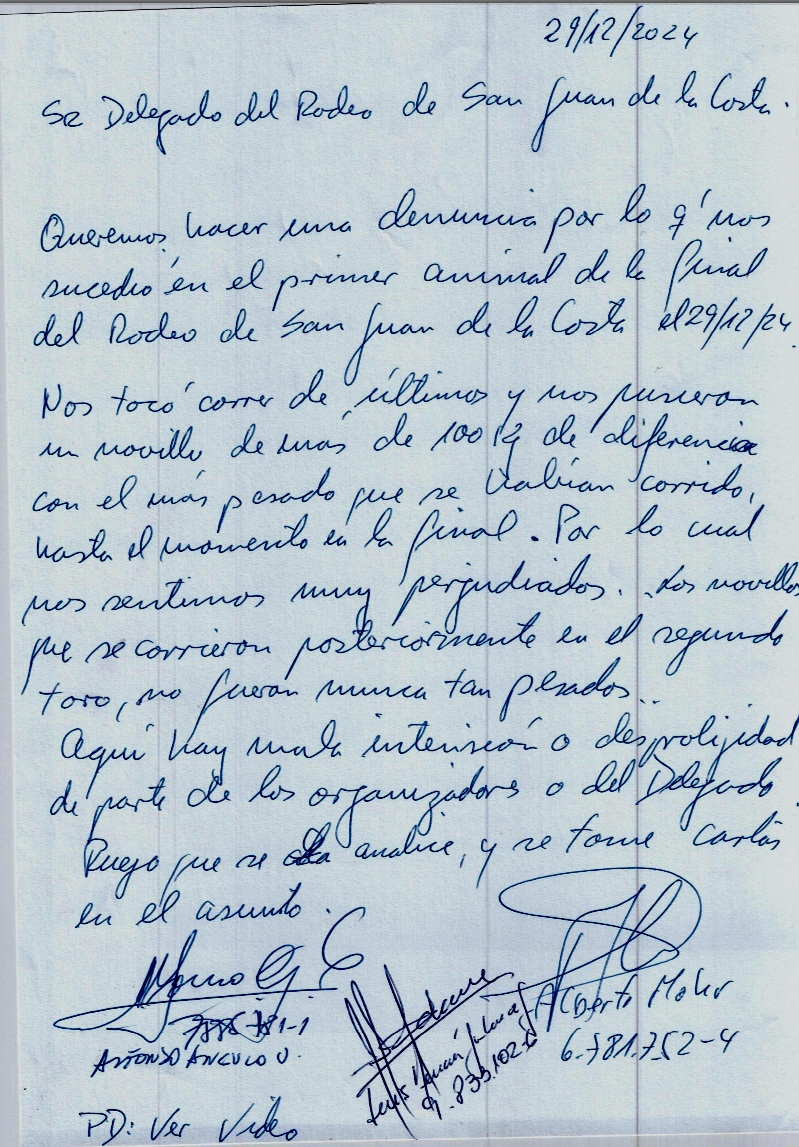 29/12/2024
Sr Delegado del Rodeo de San Juan de la Costa.
Queremos hacer una denuncia por lo q' nos
sucedio en el primer animal de la final
del Rodeo de San Juan de la Costa el 29/12/24.
Nos tocó correr de últimos y nos pusieron
un novillo de más de 100 kg de diferencia
con el más pesado que se habían corrido,
hasta el momento en la final. Por lo cual
nos sentimos muy perjudiados. Los novillos
que se corrieron posteriormente en el segundo
toro, no fueron nunca tan pesados..
Aquí hay mala intensión o desprolijidad
de parte de los organizadores o del Delegado.
Ruego que se analice, y se tome cartas
en el asunto.
Alberto Mohr
6.781.752-4
ALFONSO ANGULO U.
PD: Ver Video